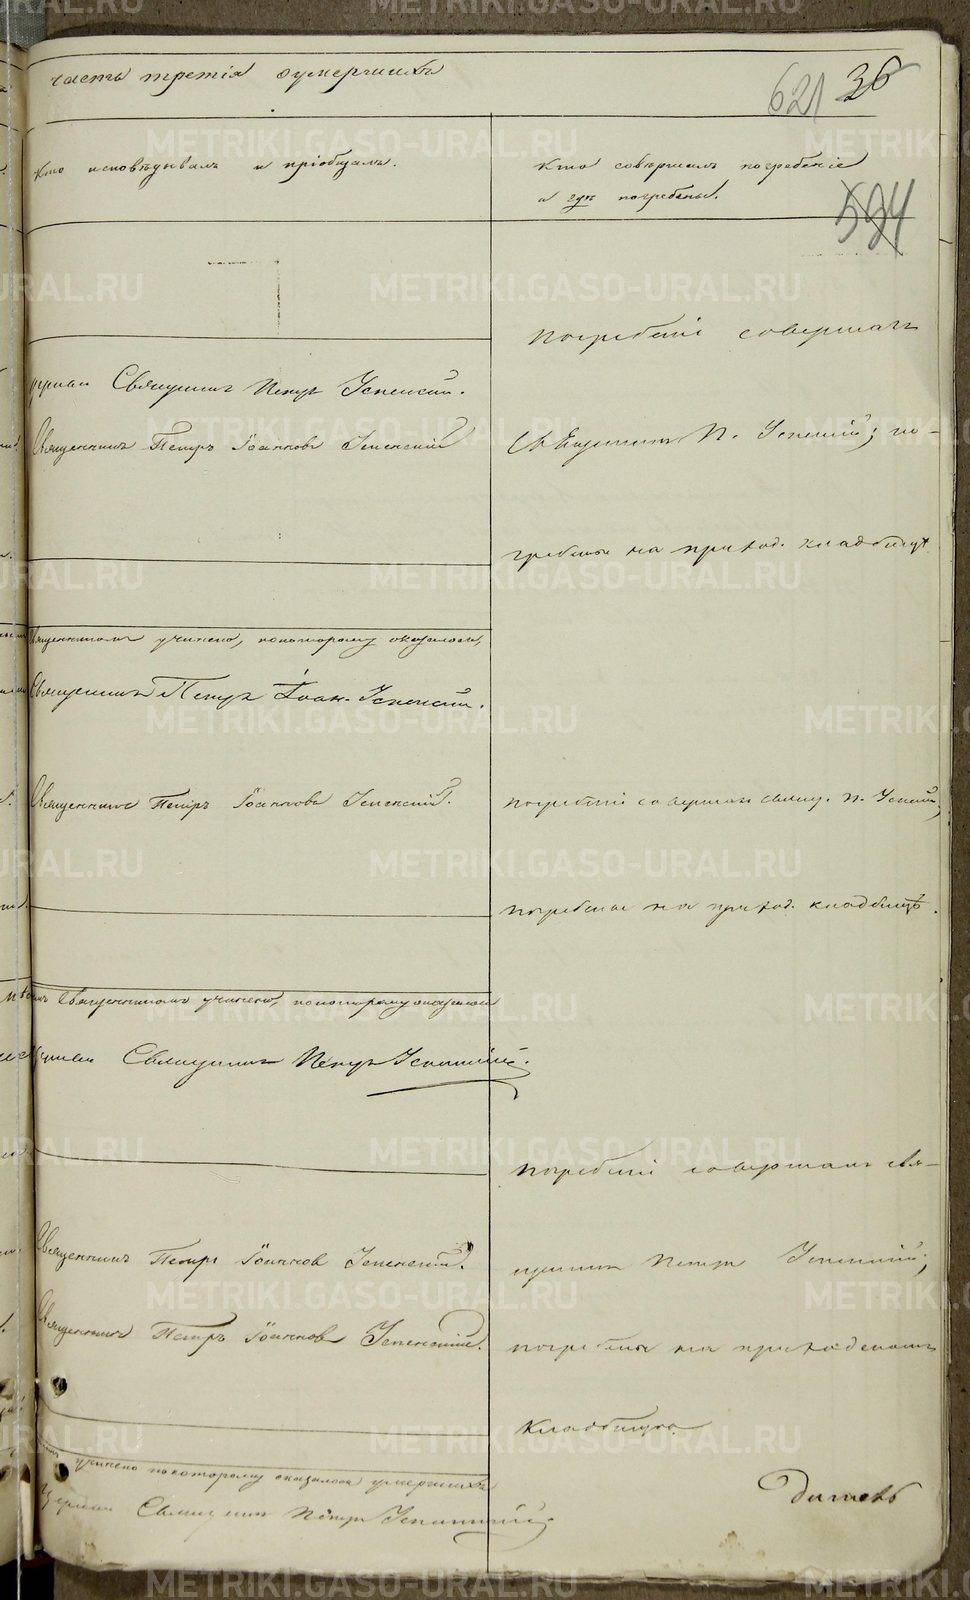 часть третія о умершихъ
621 36
Кто исповѣдывалъ и пріобщалъ.
Кто совершалъ погребеніе
и гдѣ погребены.
594
Погребеніе совершалъ
Священникъ Петръ Успенскій.
Священникъ Петръ Іоанновъ Успенскій
Священникъ П. Успенскій; по-
гребены на приход. кладбищѣ
Священникомъ учинено, покоторому оказалось,
Священникъ Петръ Іоан. Успенскій.
Священникъ Петръ Іоанновъ Успенскій.
погребеніе совершалъ свящ. П. Успенскій;
погребены на приход. кладбищѣ.
Священникомъ учинено, покоторому оказалось
Священникъ Петръ Успенскій.
погребеніе совершалъ свя-
Священникъ Петръ Іоанновъ Успенскій.
щенникъ Петръ Успенскій;
Священникъ Петръ Іоанновъ Успенскій.
погребены на приходскомъ
кладбищѣ.
учинено покоторому оказалось умершихъ
Священникъ Петръ Успенскій.
METRIKI.GASO-URAL.RU